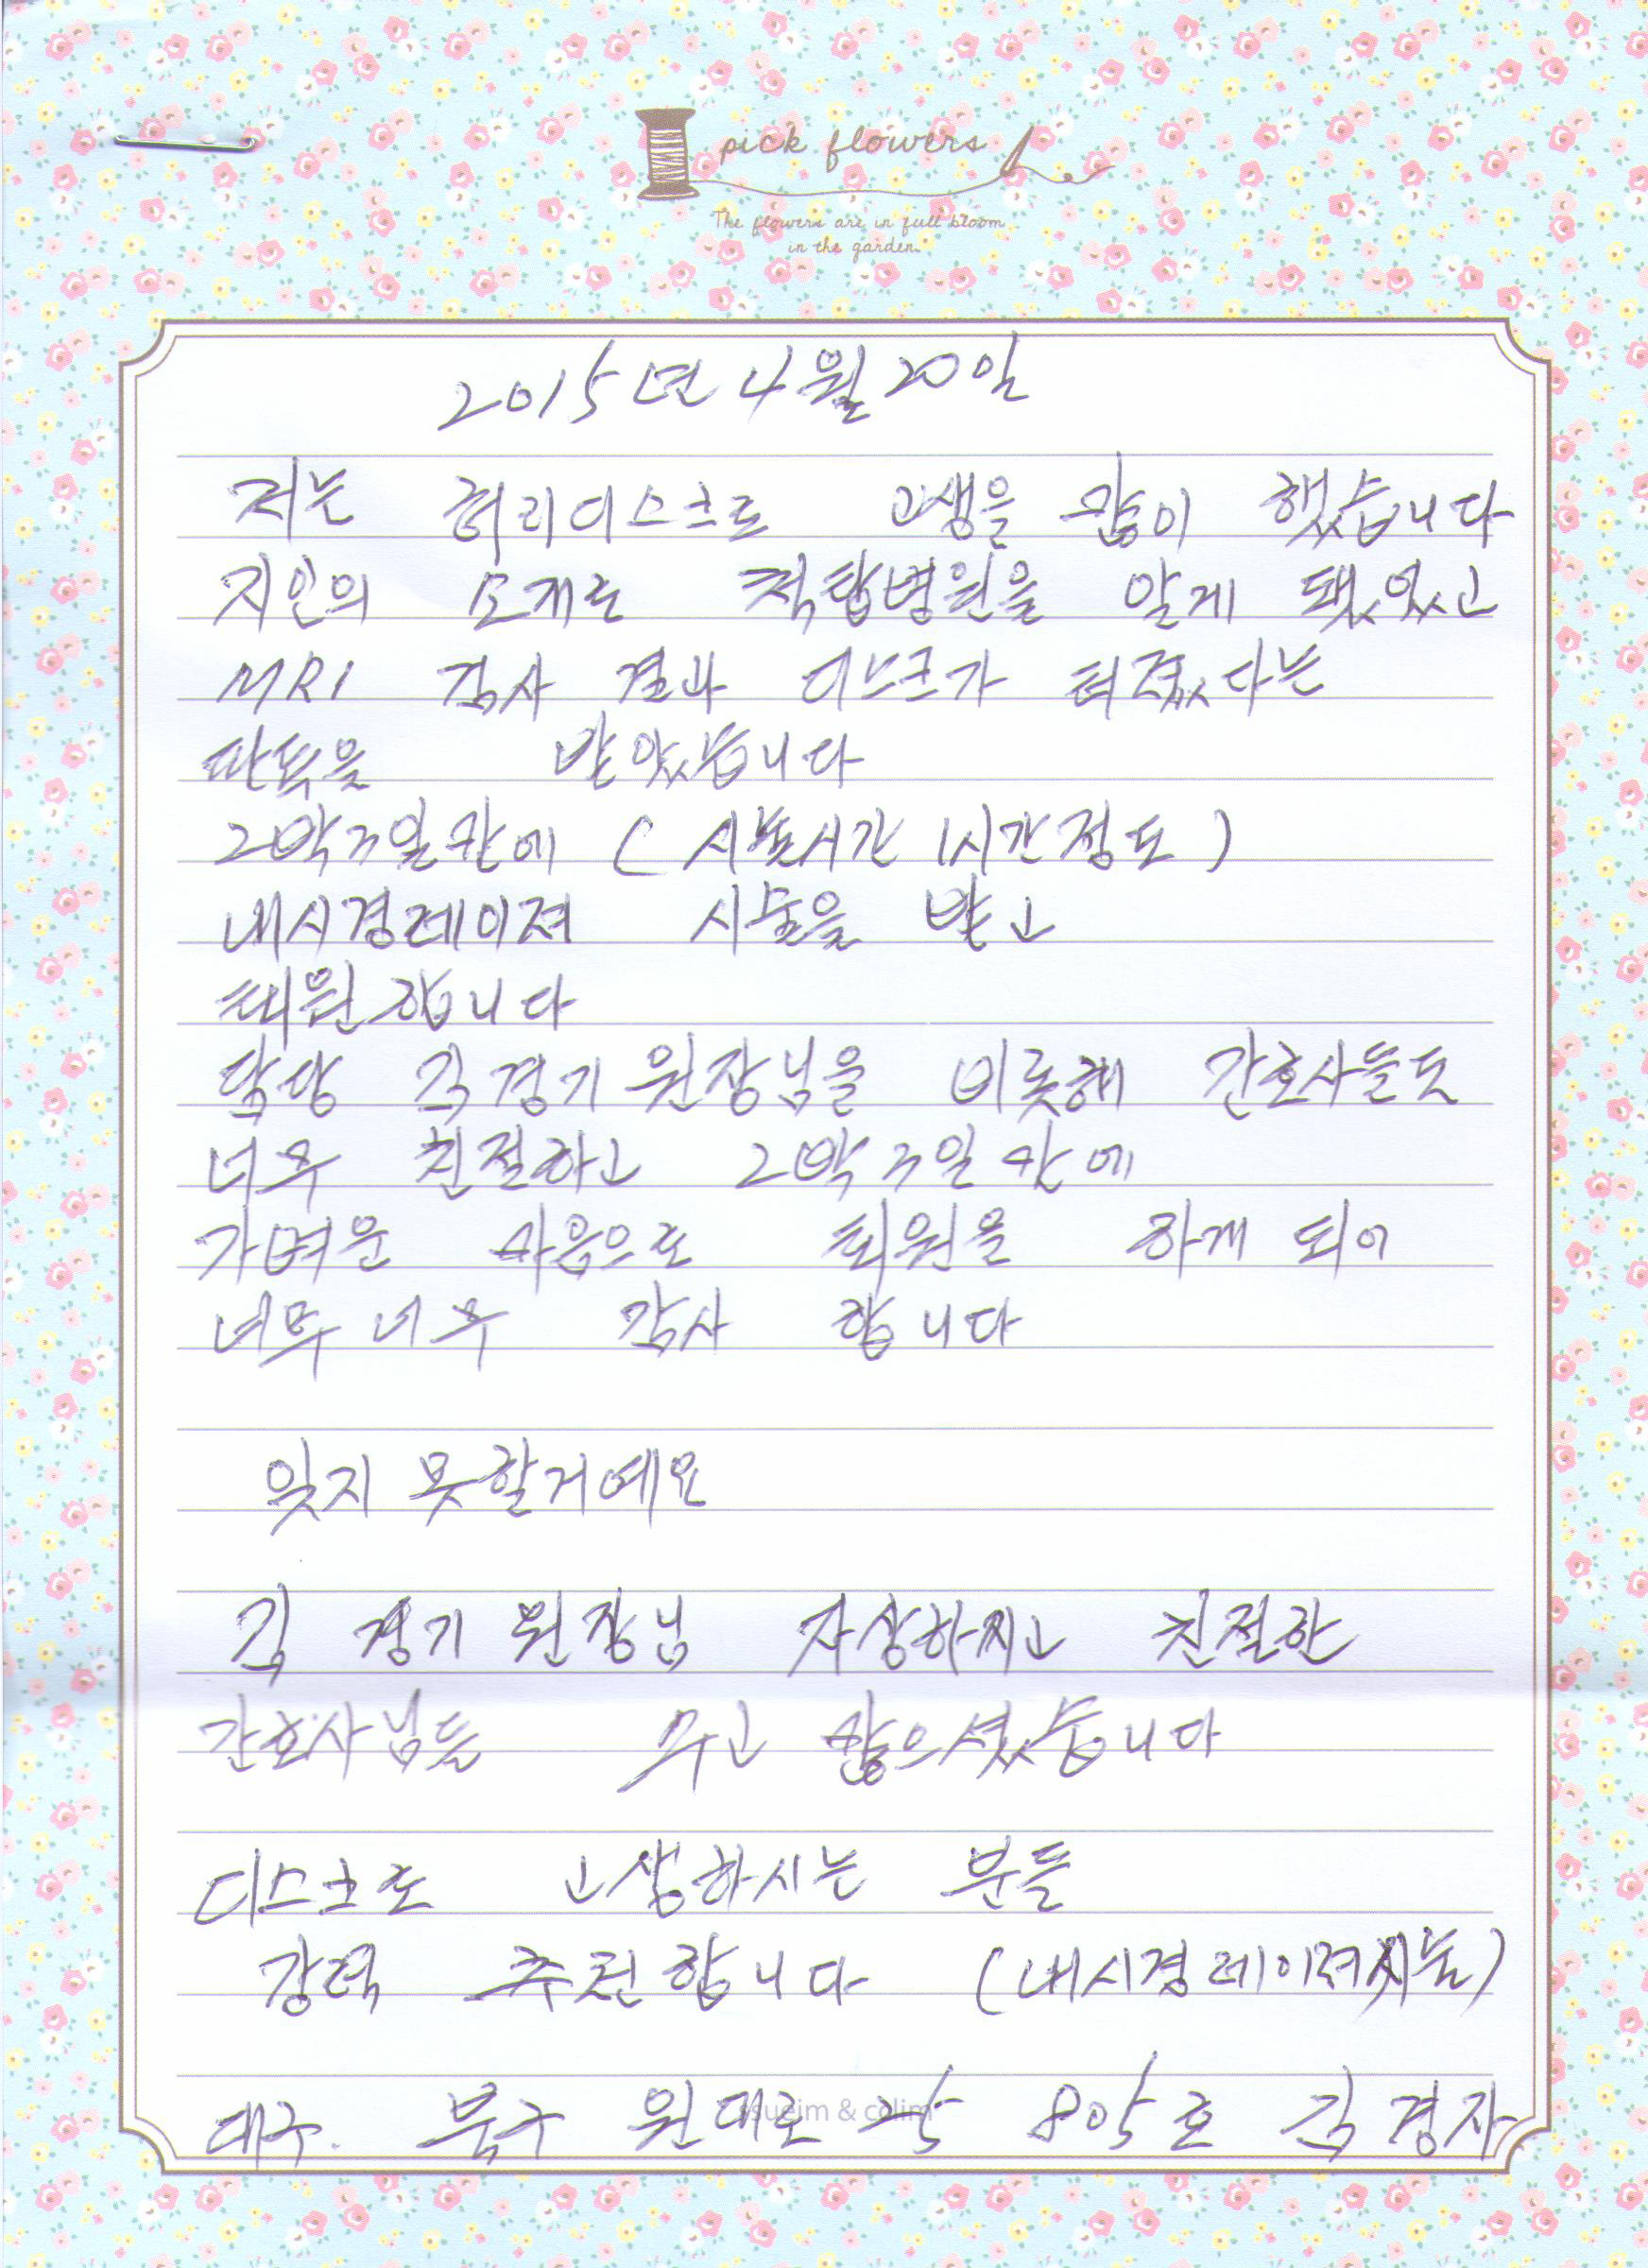 pick flowers
The flowers are in full bloom
in the garden.
2015년 4월 20일
저는 허리디스크로 고생을 많이 했습니다
지인의 소개로 척탑병원을 알게 됐었고
MRI 검사 결과 디스크가 터졌다는
판독을 받았습니다
2박3일만에 ( 시술시간 1시간정도 )
내시경레이져 시술을 받고
퇴원합니다
담당 김경기 원장님을 비롯해 간호사들도
너무 친절하고 2박3일만에
가벼운 마음으로 퇴원을 하게 되어
너무너무 감사 합니다
잊지 못할거예요
김경기 원장님 자상하시고 친절한
간호사님들 수고 많으셨습니다
디스크로 고생하시는 분들
강력 추천합니다 (내시경 레이져시술)
대구. 북구 원대로 호 김경자